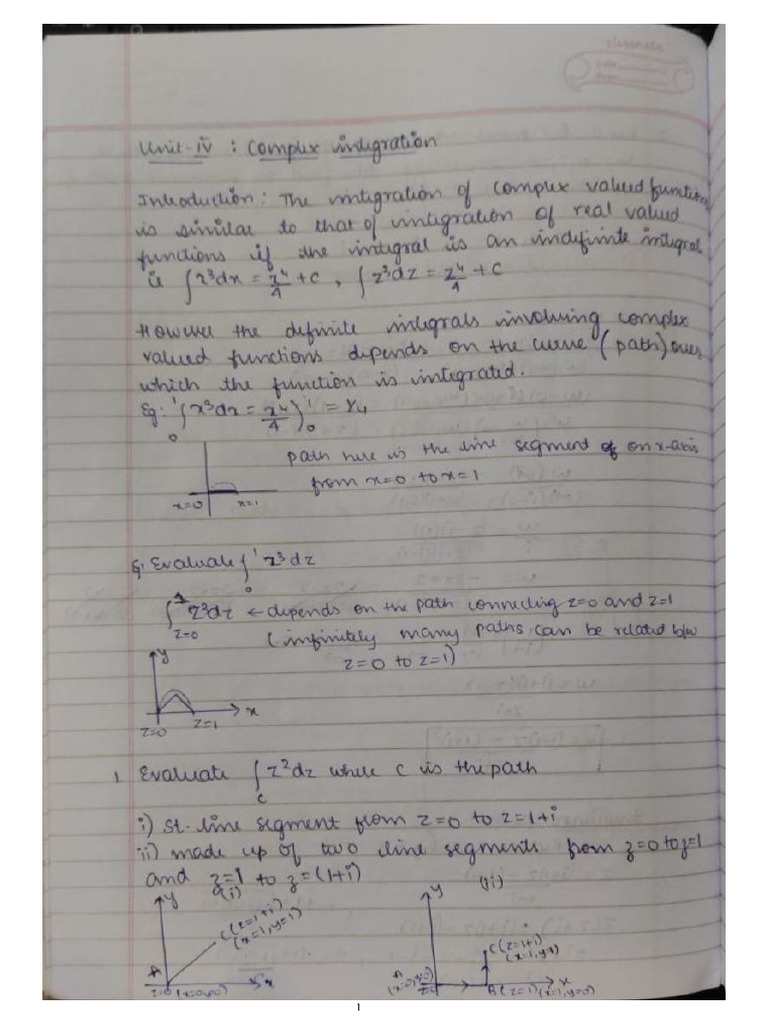 classmate
Unit-iv : Complex integration
Introduction: The integration of complex valued function
is similar to that of integration of real valued
functions if the integral is an indefinite integral
ie ∫x³dx = x⁴/4 + c, ∫z³dz = z⁴/4 + c
However the definite integrals involving complex
valued functions depends on the curve (path) over
which the function is integrated.
Eg: ₀∫¹x³dx = x⁴/4)₀¹ = 1/4
path here is the line segment of on x-axis
from x=0 to x=1
x=0 x=1
Q: Evaluate ₀∫¹ z³dz
∫ z³dz ← depends on the path connecting z=0 and z=1
z=0
(infinitely many paths can be related b/w
z=0 to z=1)
y
x
z=0 z=1
1. Evaluate ∫ z²dz where C is the path
C
i) st-line segment from z=0 to z=1+i
ii) made up of two line segments from z=0 to z=1
and z=1 to z=(1+i)
(i) (ii)
y y
C(z=1+i) C(z=1+i)
(x=1,y=1) (x=1,y=1)
A A
z=0 (x=0,y=0) x (x=0,y=0) z=0 B(z=1)(x=1,y=0) x
1